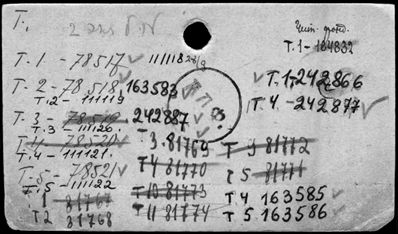 T.
T.1 - 164832
T.1 - 78517 111118
T.1. 242866
T.2 - 78518 163583
T.2 - 111119
T 4 - 242877
T.3 - 78519 242887
T.3 - 111120.
T.4 - 78520
3. 81769
T 3 81772
T.4 - 111121.
T 4 81770
T 5 81771
T.5 - 78521
T.5 - 111122
T 10 81773
T 4 163585
1 81767
T 2 81768
T 11 81774
T 5 163586